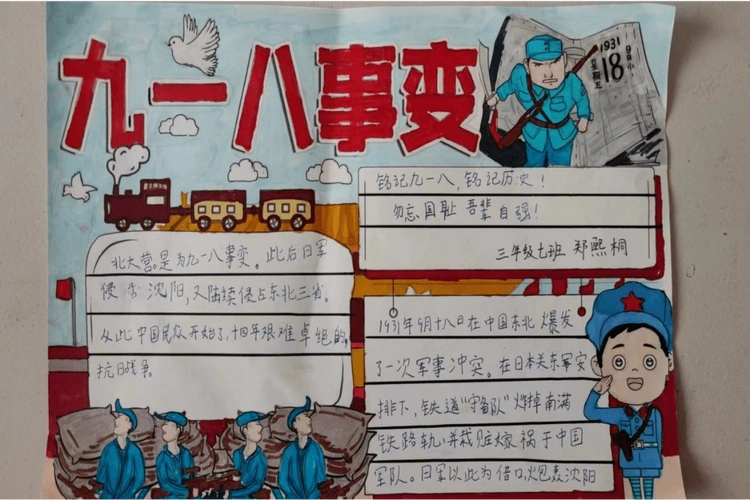 九一八事变
1931
9月小
18
星期五
铭记九一八，铭记历史！
勿忘国耻 吾辈自强！
三年级七班 郑熙桐
北大营。是为九一八事变。此后日军
侵占沈阳，又陆续侵占东北三省。
从此中国民众开始了，十四年艰难卓绝的，
抗日战争
1931年9月十八日在中国东北 爆发
了一次军事冲突。在日本关东军安
排下，铁道"守备队"炸掉南满
铁路轨，并栽赃嫁祸于中国
军队。日军以此为借口，炮轰沈阳